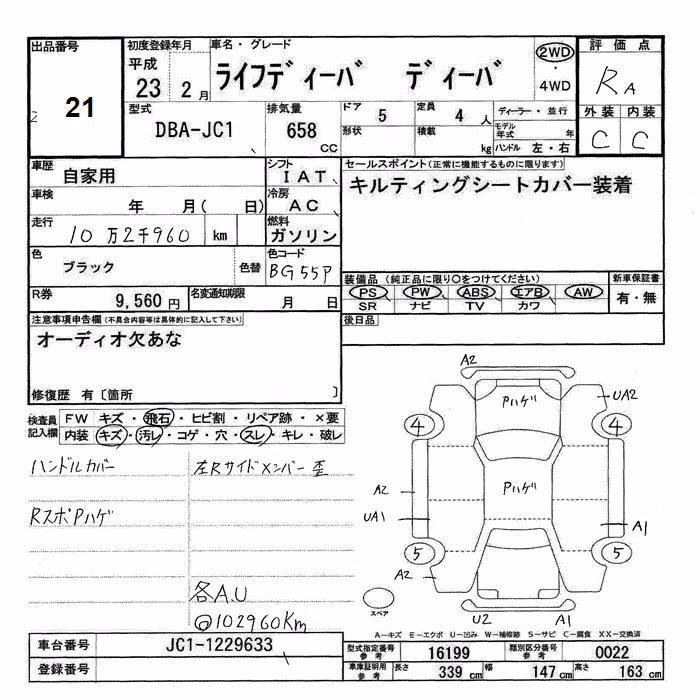 出品番号
21
初度登録年月
平成
23 2月
車名・グレード
ライフディーバ ディーバ
2WD
・
4WD
評価点
RA
外装 内装
C C
型式
DBA-JC1
排気量
658
CC
ドア 5
形状
定員 4人
積載 kg
ディーラー・並行
モデル年式 年
ハンドル 左・右
車歴
自家用
シフト
IAT
車検
年 月( 日)
冷房
AC
走行
10万2千960 km
燃料
ガソリン
色
ブラック
色替
色コード
BG55P
R券
9,560円
名変通知期限
月 日
セールスポイント(正常に機能するものに限ります)
キルティングシートカバー装着
装備品(純正品に限り○をつけてください)
PS PW ABS エアB AW
SR ナビ TV カワ
新車保証書
有・無
後日品
注意事項申告欄(不具合内容等は具体的に記入して下さい)
オーディオ欠あな
修復歴 有〔箇所 〕
検査員記入欄
FW キズ・飛石・ヒビ割・リペア跡・×要
内装 キズ・汚レ・コゲ・穴・スレ・キレ・破レ
ハンドルカバー
左Rサイドメンバー歪
RスポPハゲ
各A.U
@102960Km
A2
Pハゲ
UA2
4 4
Pハゲ
A2
UA1
A1
5 5
A2
スペア
U2 A1
A-キズ E-エクボ U-凹み W-補修跡 S-サビ C-腐食 XX-交換済
車台番号
JC1-1229633
登録番号
型式指定番号 参考 16199
類別区分番号 参考 0022
車庫証明用 参考
長さ 339cm
幅 147cm
高さ 163cm